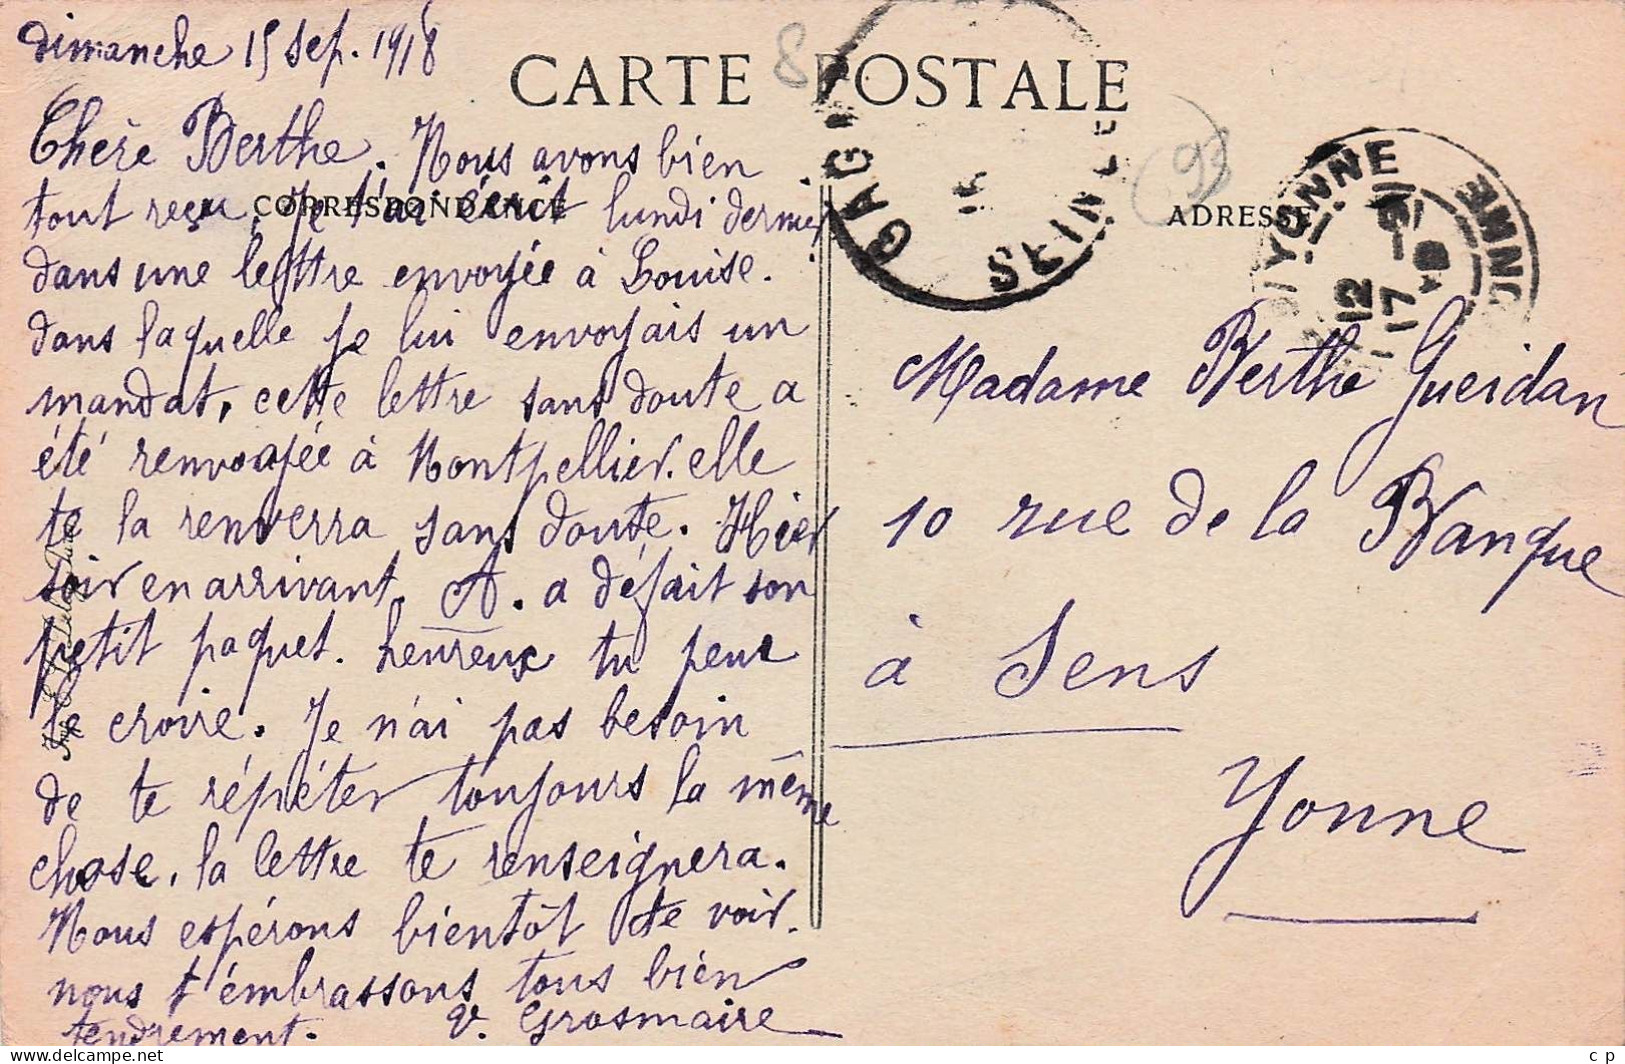 dimanche 15 sep. 1918
CARTE POSTALE
8
GAG
SEINE
15
93
YONNE
YONNE
12
17
CORRESPONDANCE
ADRESSE
Chère Berthe. Nous avons bien
tout reçu. Je t'ai écrit lundi dernier
dans une lettre envoyée à Louise.
dans laquelle je lui envoyais un
mandat, cette lettre sans doute a
été renvoyée à Montpellier. elle
te la renverra sans doute. Hier
soir en arrivant. A. a défait son
petit paquet. heureux tu peux
le croire. Je n'ai pas besoin
de te répéter toujours la même
chose, la lettre te renseignera.
Nous espérons bientôt te voir.
nous t'embrassons tous bien
tendrement. V. Grosmaire
Madame Berthe Gueidan
10 rue de la Banque
à Sens
Yonne
Imp.
c p